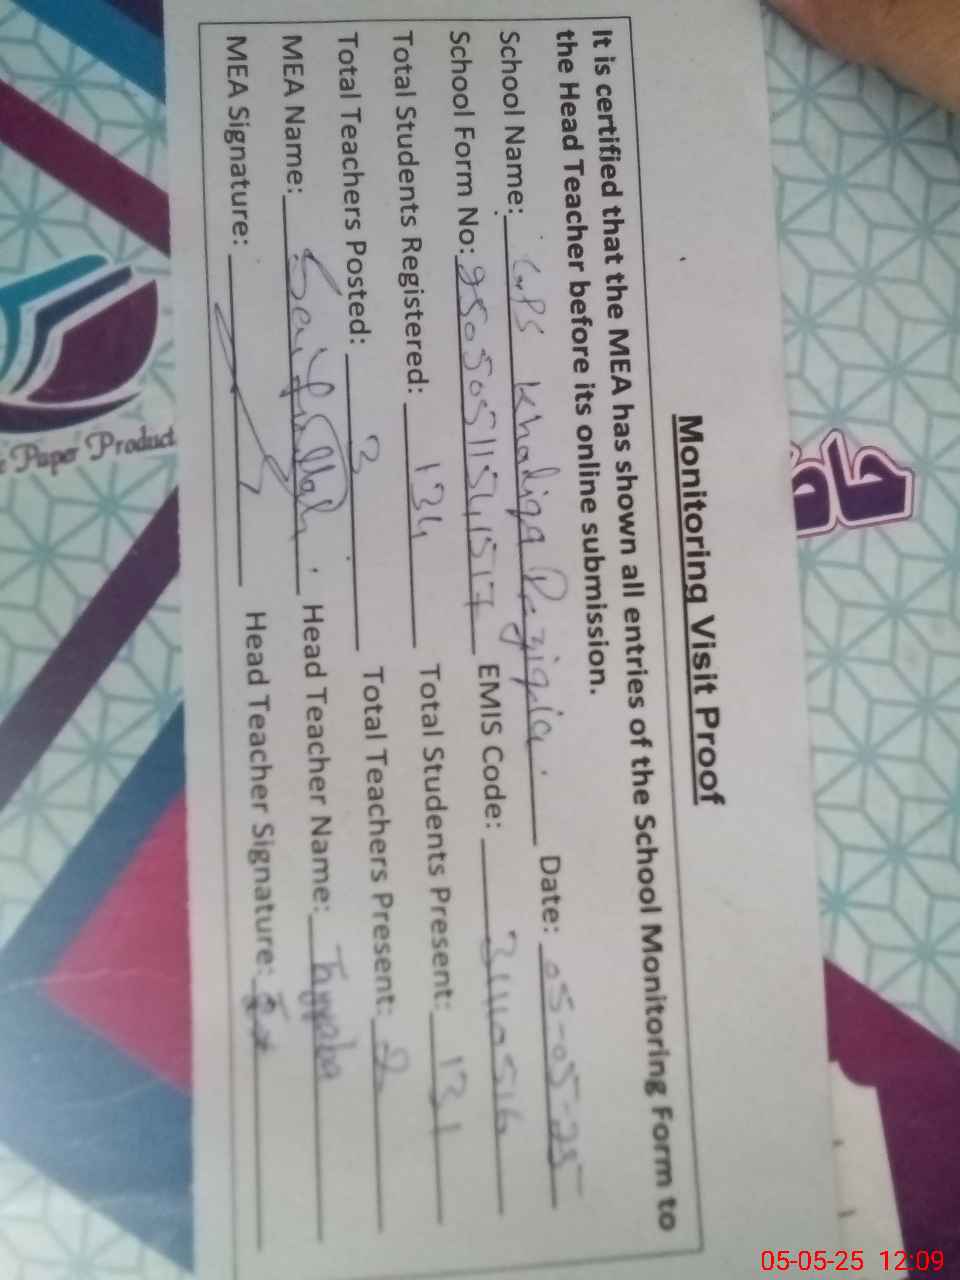 Monitoring Visit Proof
It is certified that the MEA has shown all entries of the School Monitoring Form to
the Head Teacher before its online submission.
School Name: GPS Khaliqa Date: 05-05-25
School Form No: EMIS Code:
Total Students Registered: 134 Total Students Present: 131
Total Teachers Posted: Total Teachers Present: 2
MEA Name: Saifullah Head Teacher Name: Tayyaba
MEA Signature: Head Teacher Signature:
Paper Product
05-05-25 12:09